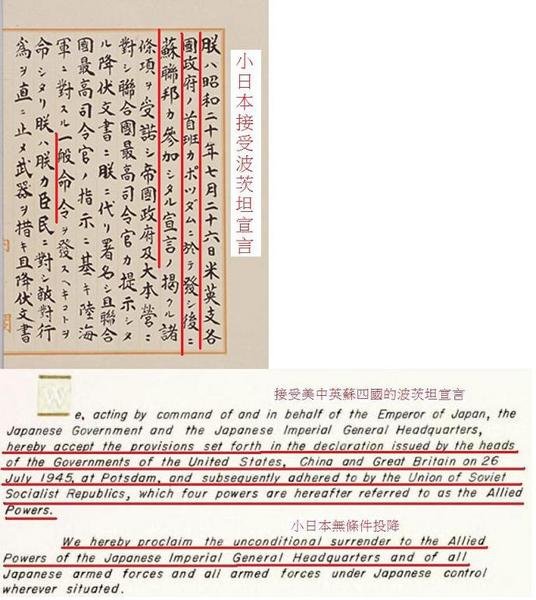 小日本接受波茨坦宣言
朕ハ昭和二十年七月二十六日米英支各
國政府ノ首班カポツダムニ於テ發シ後ニ
蘇聯邦カ參加シタル宣言ノ掲クル諸
條項ヲ受諾シ帝國政府及大本營ニ
對シ聯合國最高司令官カ提示シタ
ル降伏文書ニ朕ニ代リ署名シ且聯合
國最高司令官ノ指示ニ基キ陸海
軍ニ對スル一般命令ヲ發スヘキコトヲ
命シタリ朕ハ朕カ臣民ニ對シ敵對行
爲ヲ直ニ止メ武器ヲ措キ且降伏文書
接受美中英蘇四國的波茨坦宣言
We, acting by command of and in behalf of the Emperor of Japan, the
Japanese Government and the Japanese Imperial General Headquarters,
hereby accept the provisions set forth in the declaration issued by the heads
of the Governments of the United States, China and Great Britain on 26
July 1945, at Potsdam, and subsequently adhered to by the Union of Soviet
Socialist Republics, which four powers are hereafter referred to as the Allied
Powers.
小日本無條件投降
We hereby proclaim the unconditional surrender to the Allied
Powers of the Japanese Imperial General Headquarters and of all
Japanese armed forces and all armed forces under Japanese control
wherever situated.